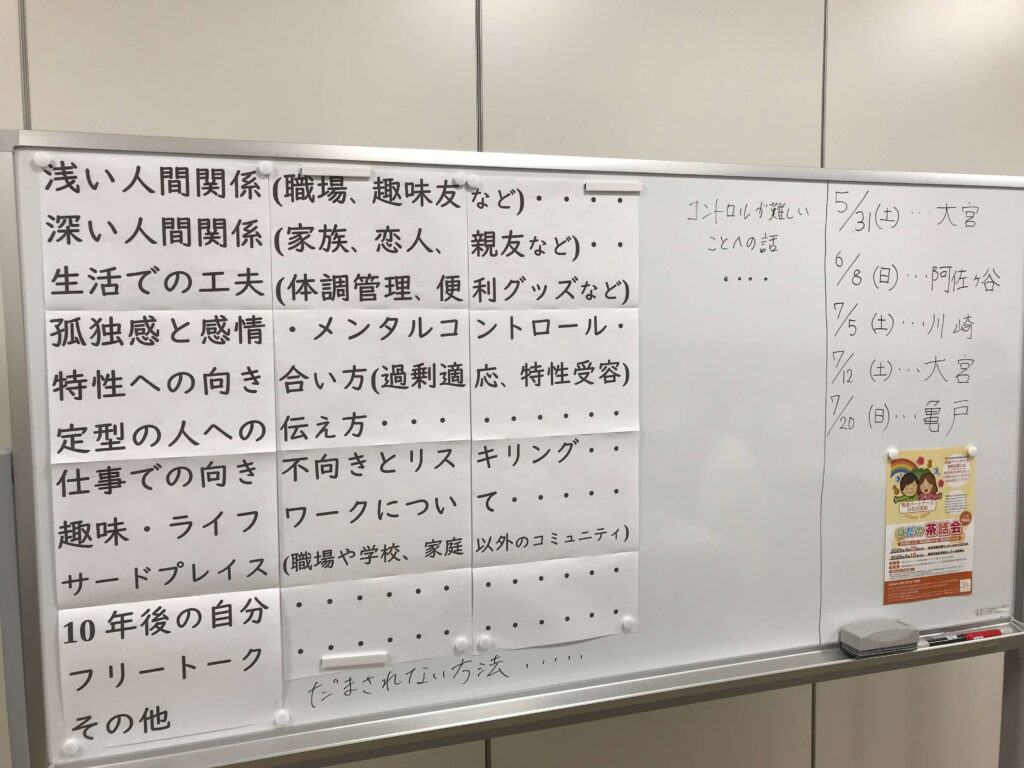 浅い人間関係(職場、趣味友など)・・・・
深い人間関係(家族、恋人、親友など)・・
生活での工夫(体調管理、便利グッズなど)
孤独感と感情・メンタルコントロール・
特性への向き合い方(過剰適応、特性受容)
定型の人への伝え方・・・・・・・・・
仕事での向き不向きとリスキリング・・
趣味・ライフワークについて・・・・・
サードプレイス(職場や学校、家庭以外のコミュニティ)
10年後の自分・・・・・・・・・・・・
フリートーク・・・・・・・・・・・・
その他
だまされない方法・・・・・
コントロールが難しい
ことへの話
・・・・
5/31(土)・・・大宮
6/8(日)・・・阿佐ヶ谷
7/5(土)・・・川崎
7/12(土)・・・大宮
7/20(日)・・・亀戸
はだの茶話会